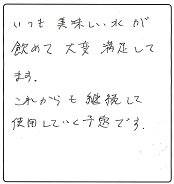 いつも 美味しい水が
飲めて 大変 満足して
ます.
これからも 継続して
使用していく予定です.